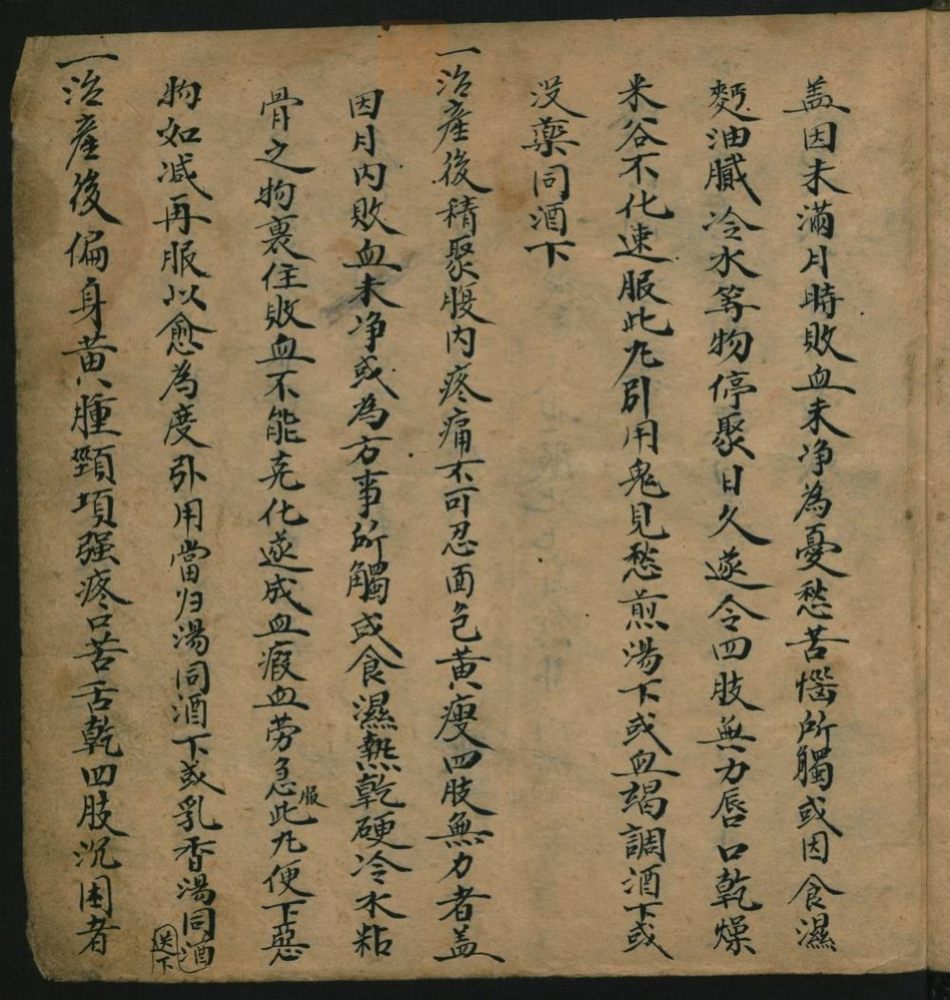 盖因未滿月時敗血未净為憂愁苦惱所觸或因食濕
麪油膩冷水等物停聚日久遂令四肢無力唇口乾燥
米谷不化速服此丸引用鬼見愁煎湯下或血竭調酒下或
没藥同酒下
一治產後積聚腹内疼痛不可忍面色黄瘦四肢無力者盖
因月内敗血未净或為方事所觸或食濕熱乾硬冷水粘
骨之物裹住敗血不能克化遂成血瘕血劳急服此丸便下惡
物如减再服以愈為度引用當归湯同酒下或乳香湯同酒
送下
一治產後偏身黄腫頸項强疼口苦舌乾四肢沉困者